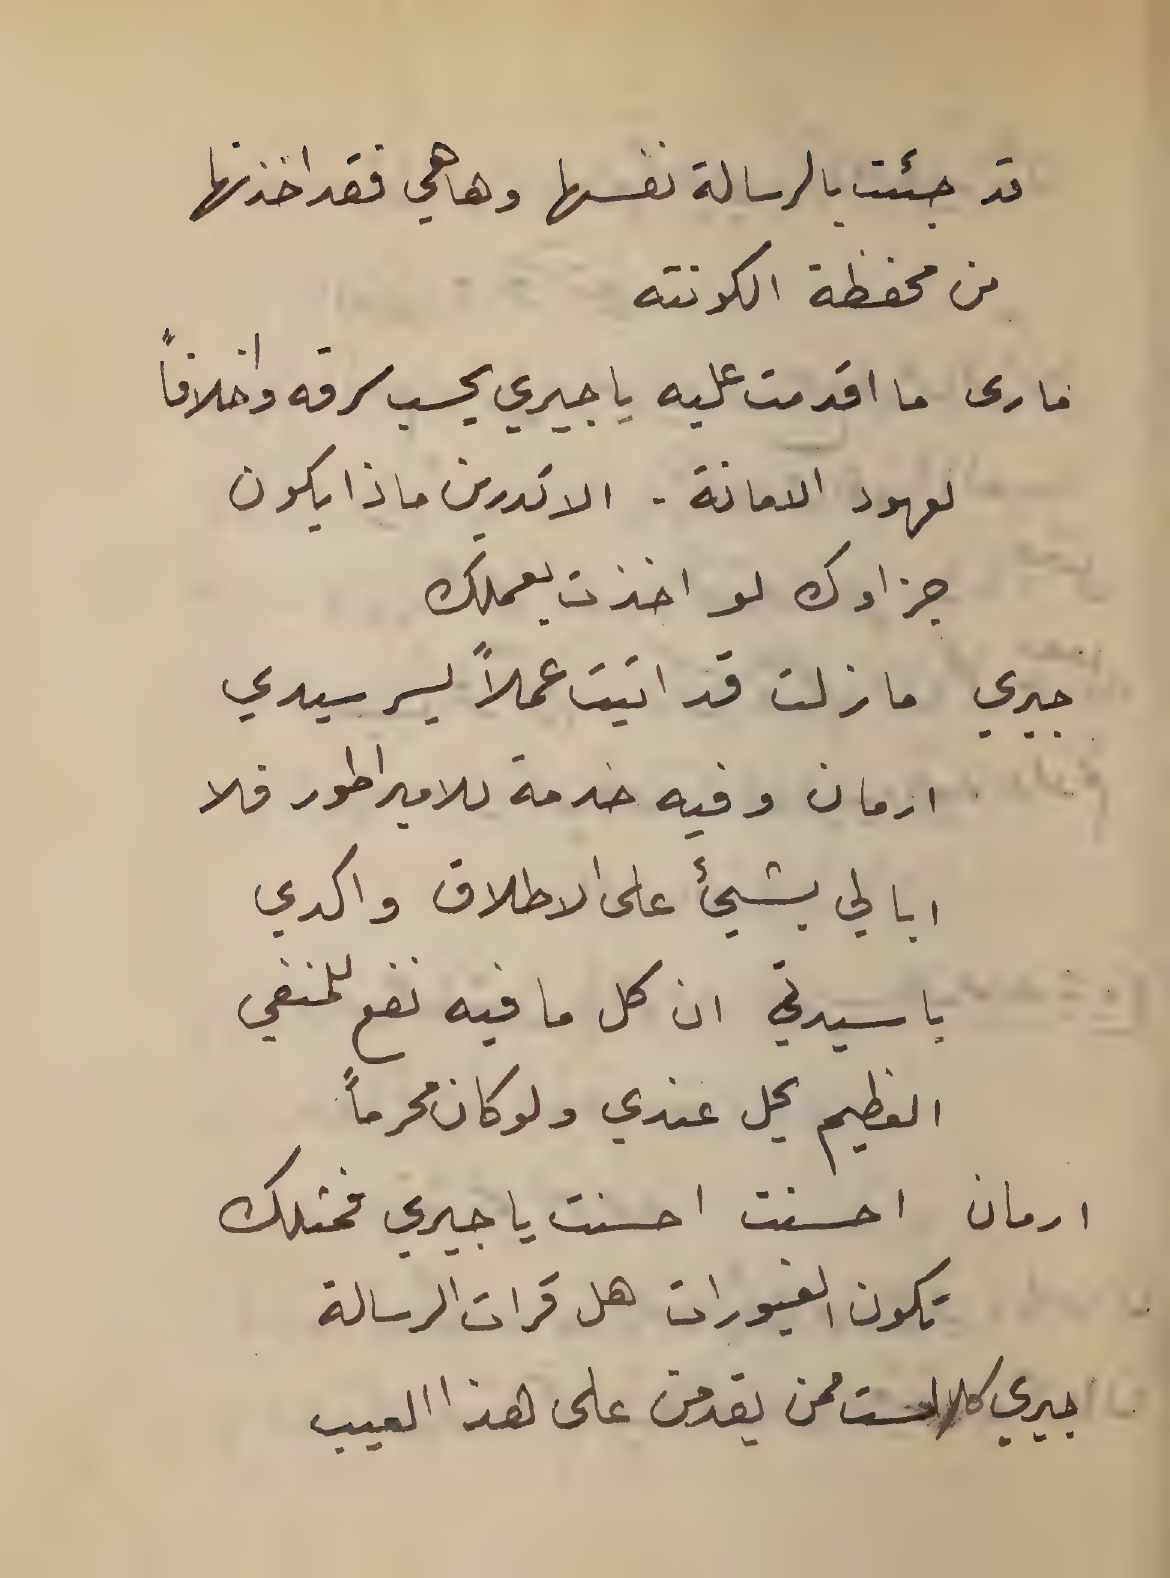 قد جئت بالرسالة نفسها وهاهي فقد اخذتها
من محفظة الكونته
مارى ما اقدمت عليه يا جيري يحسب سرقه واخلافاً
لعهود الامانة - الا تدرين ماذا يكون
جزاوك لو اخذت بعملك
جيري ما زلت قد اتيت عملاً يسر سيدي
ارمان وفيه خدمة للامبراطور فلا
ابالي بشيئ على الاطلاق واكدي
يا سيدتي ان كل ما فيه نفع للمنفي
العظيم يحل عندي ولو كان محرماً
ارمان احسنت احسنت يا جيري فمثلك
تكون الغيورات هل قرات الرسالة
جيري كلا لست ممن يقدمن على هذا العيب